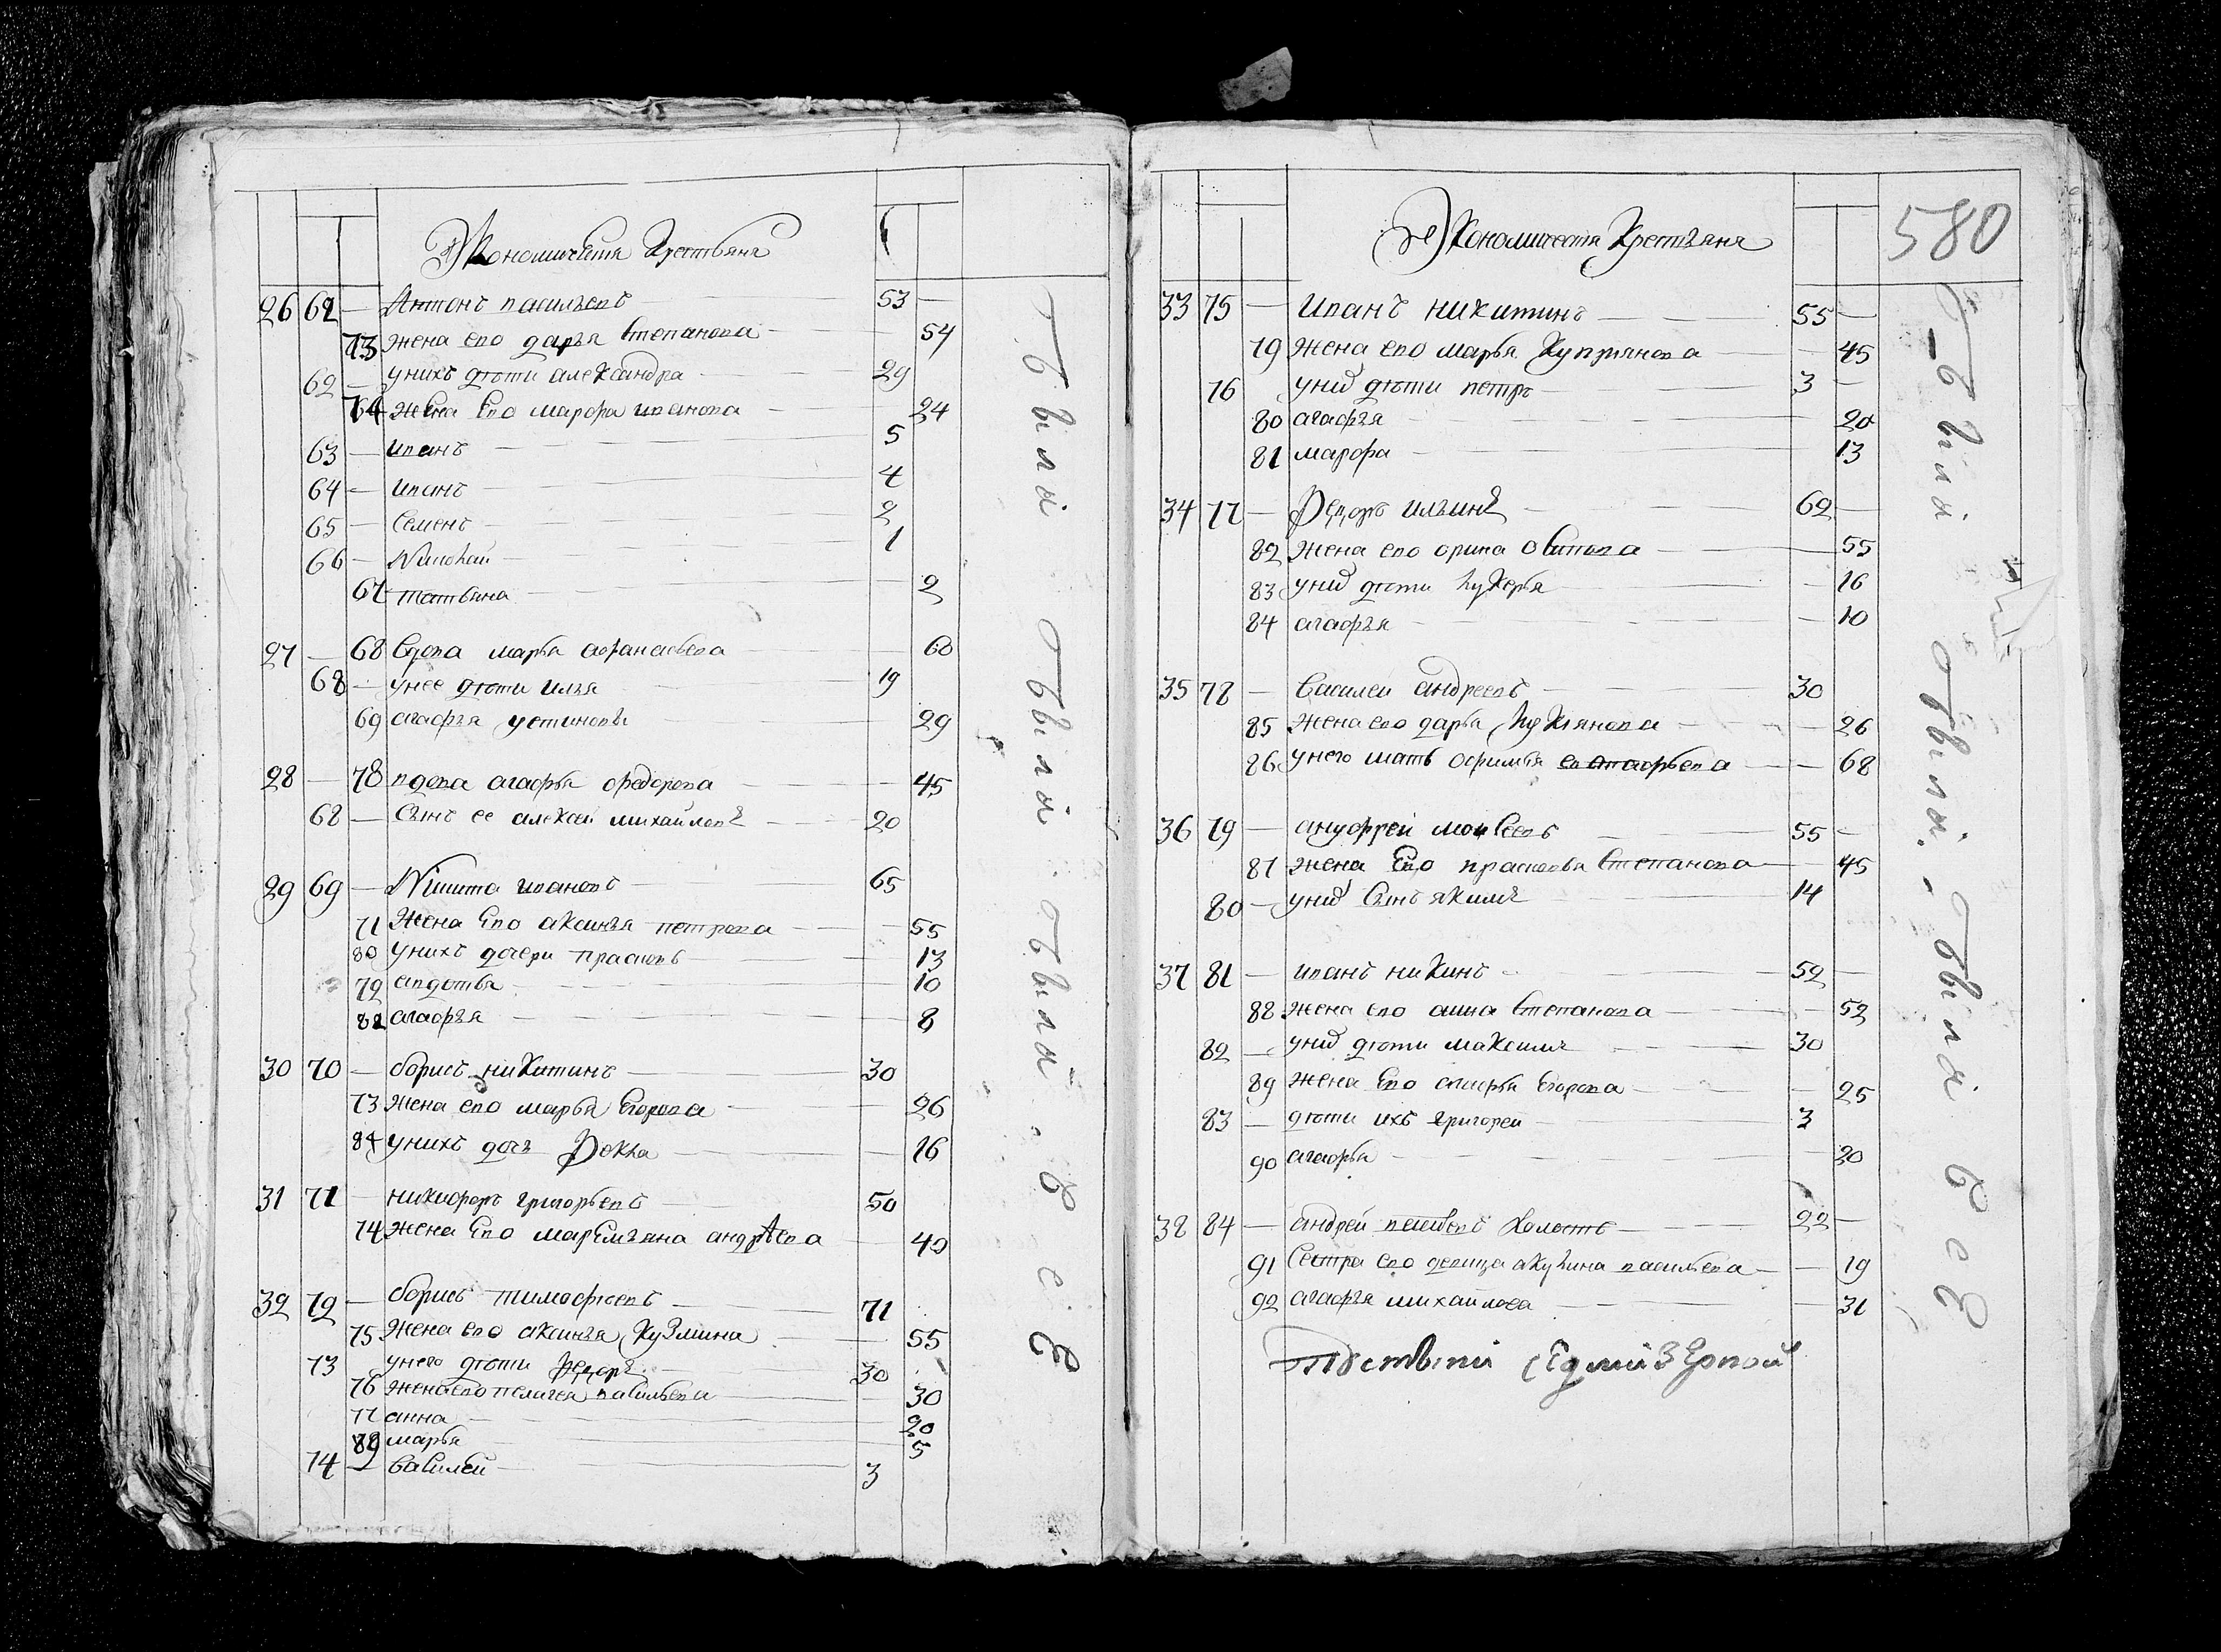 Экономическия Крестьяня
26 62 — Антонъ васильевъ — 53 —
73 жена ево дарья степанова — 54
62 — унихъ дѣти александра — 29
74 жена Ево марфа иванова — 24
63 — иванъ — 5
64 — иванъ — 4
65 — Семенъ — 2
66 — Николай — 1
67 татьяна — 2
27 — 68 Вдова марья афанасьева — 60
68 — унее дѣти илья — 19
69 агафья устинова — 29
28 — 70 вдова агафья федорова — 45
68 — Сынъ ее алексей михайловъ — 20
29 69 — Никита ивановъ — 65
71 Жена Ево аксинья петрова — 55
80 унихъ дочери прасковь — 13
79 авдотья — 10
82 агафья — 8
30 70 — борисъ никитинъ — 30
73 жена ево марья Егорова — 26
84 унихъ дочь Фекла — 16
31 71 — никифоръ григорьевъ — 50
74 жена Ево маремьяна андрѣева — 40
32 72 — борисъ тимофѣевъ — 71
75 жена ево аксинья Кузмина — 55
73 унего дѣти Федоръ — 30
76 жена ево пелагея васильева — 30
77 анна — 20
78 марья — 5
74 — Василей — 3
былъ былъ былъ
Экономическия Крестьяня
580
33 75 — Иванъ никитинъ — 55 —
79 жена ево марья Куприянова — 45
76 униӣ дѣти петръ — 3 —
80 агафья — 20
81 марфа — 13
34 77 — Федоръ ильинъ — 62 —
82 жена ево орина осипова — 55
83 униӣ дѣти лукерья — 16
84 агафья — 10
35 78 — Василей андреевъ — 30
85 жена ево дарья Лукиянова — 26
86 унего мать офимья — 68
36 79 — ануфрей моисеевъ — 55 —
87 жена Ево прасковья Степанова — 45
80 — униӣ Сынъ якимъ — 14
37 81 — иванъ никинъ — 52 —
88 жена ево анна Степанова — 52
82 — униӣ дѣти максимъ — 30
89 жена Ево Егорова — 25
83 — дѣти ихъ григорей — 3
90 агафья — 20
38 84 — андрей холостъ — 22 —
91 Сестра ево девица акулина васильева — 19
92 агафья михайлова — 31
былъ былъ былъ